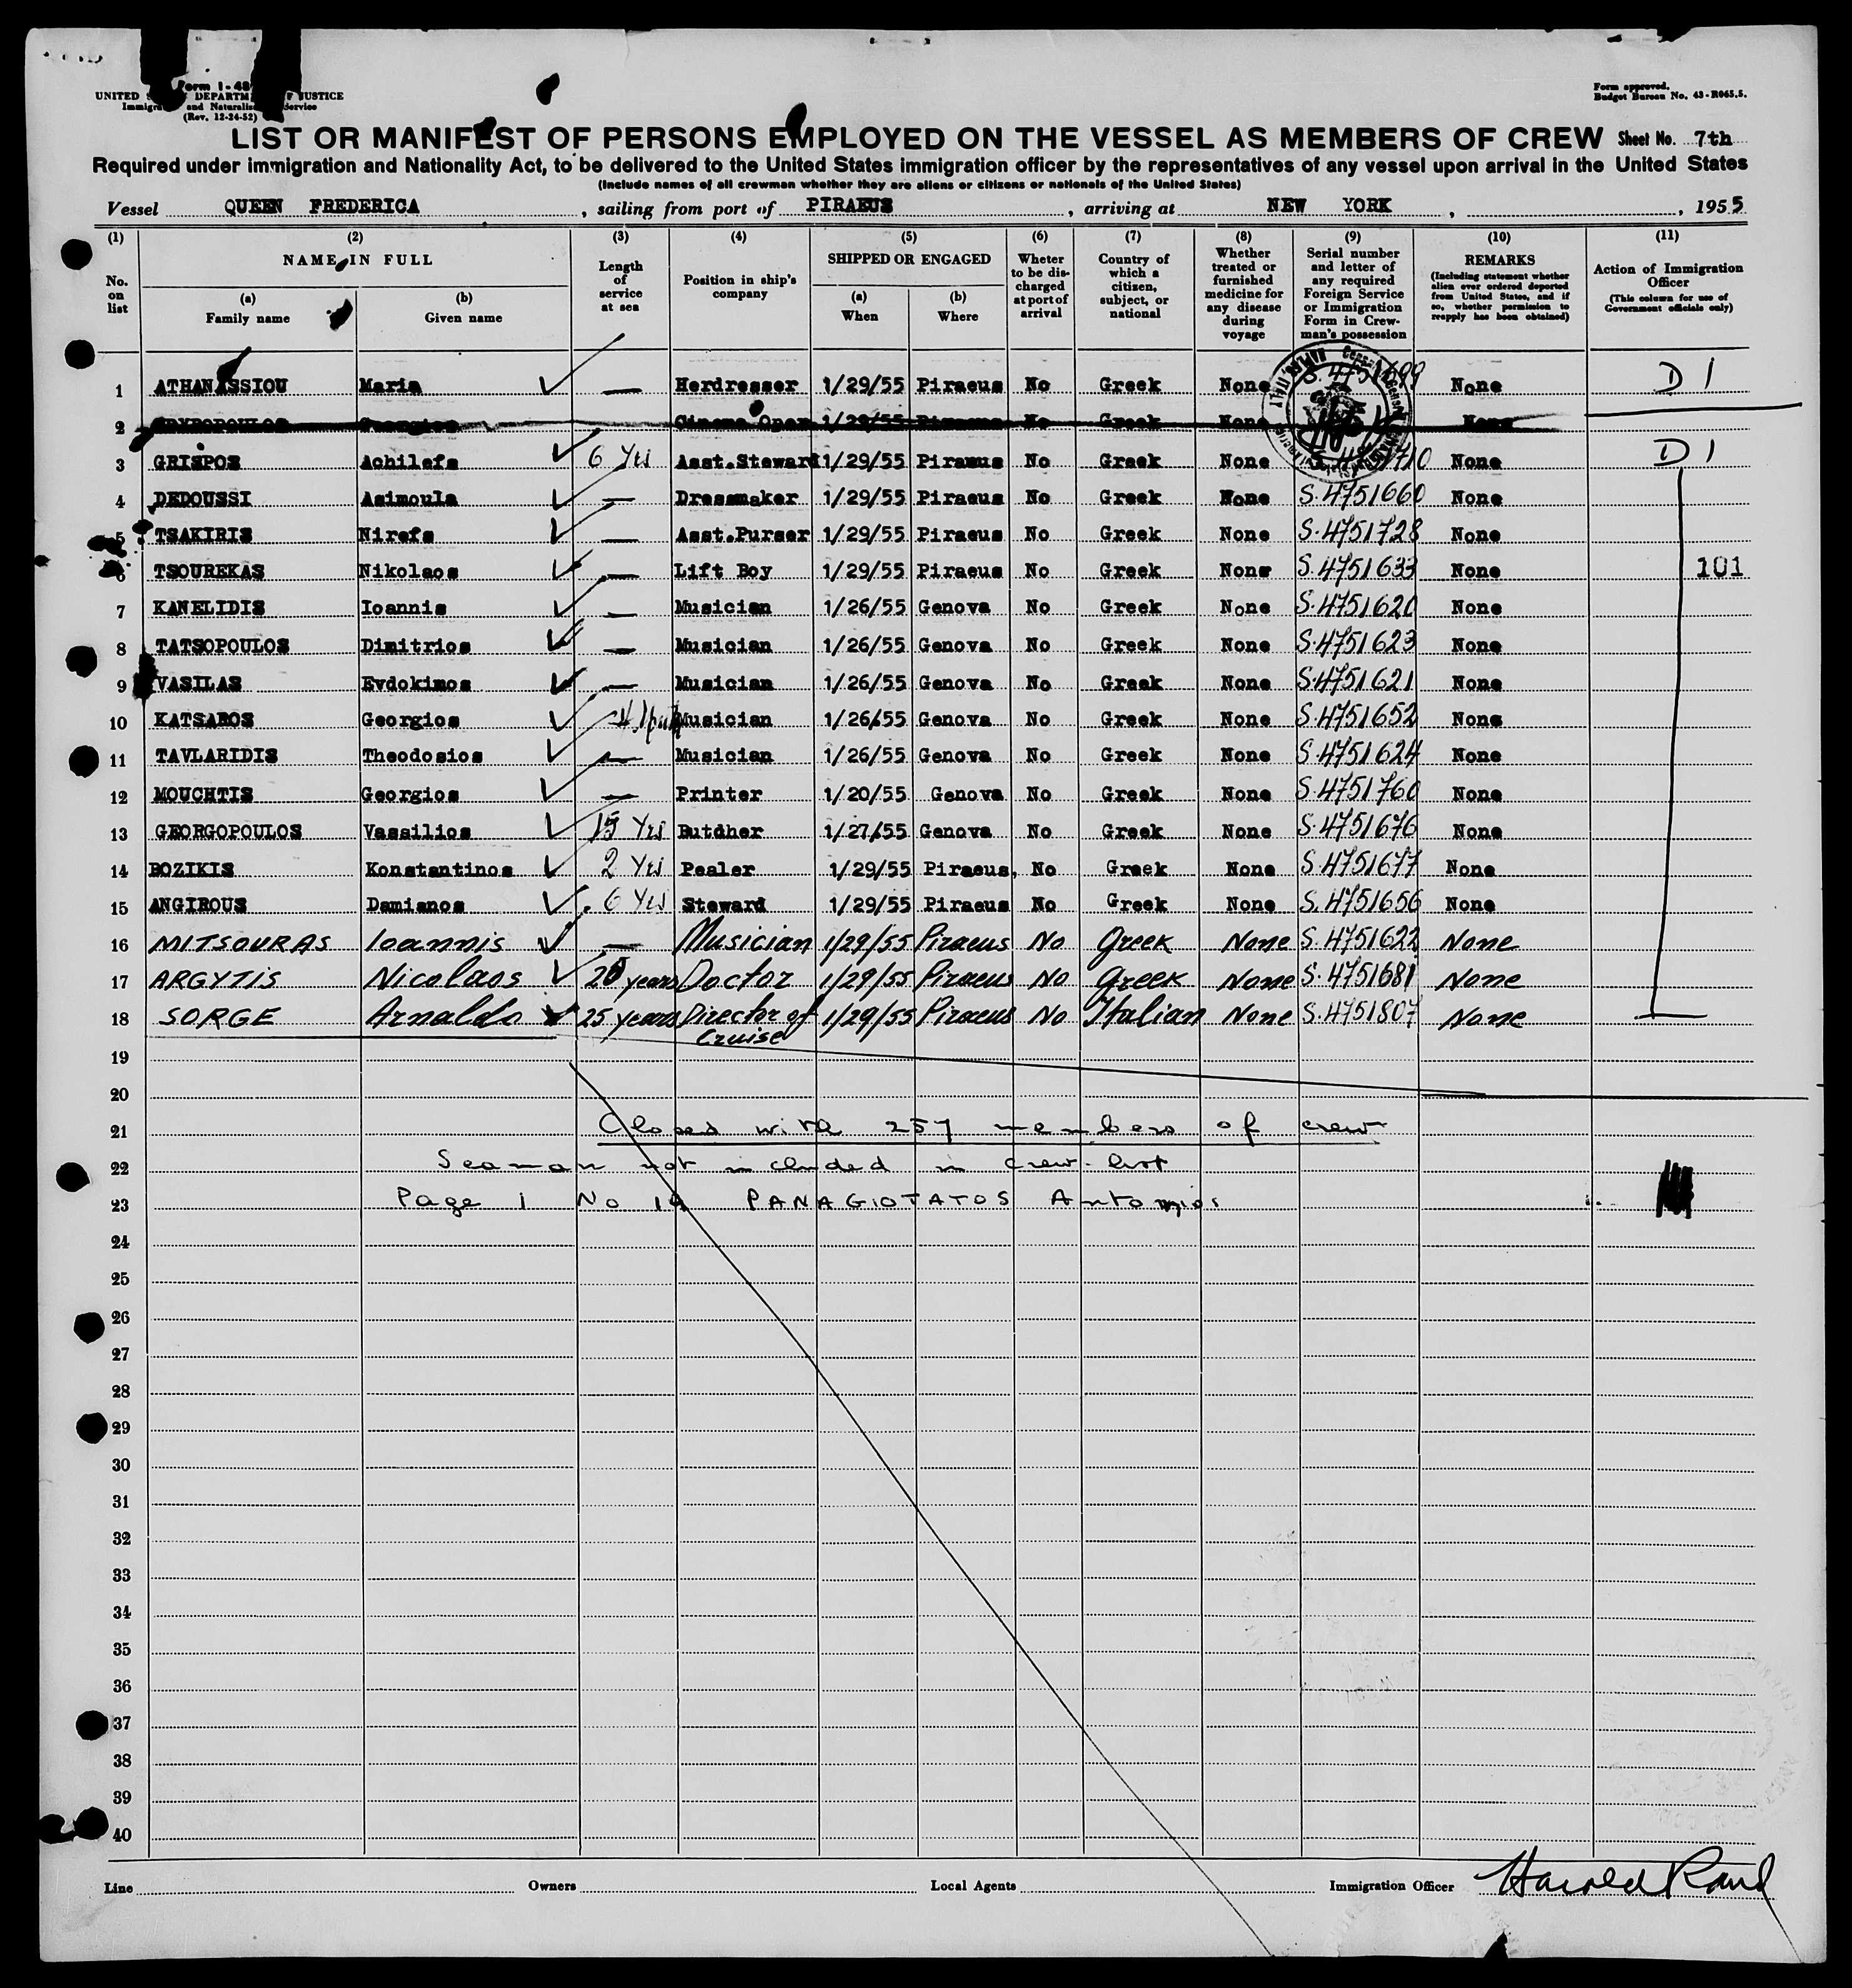 Form I-48
UNITED DEPARTM JUSTICE
Immigra and Naturaliz Service
(Rev. 12-24-52)
Form approved.
Budget Bureau No. 43-R065.5.
LIST OR MANIFEST OF PERSONS EMPLOYED ON THE VESSEL AS MEMBERS OF CREW Sheet No. 7th
Required under immigration and Nationality Act, to be delivered to the United States immigration officer by the representatives of any vessel upon arrival in the United States
(Include names of all crewman whether they are aliens or citizens or nationals of the United States)
Vessel QUEEN FREDERICA, sailing from port of PIRAEUS, arriving at NEW YORK, , 1955
(1) (2) (3) (4) (5) (6) (7) (8) (9) (10) (11)
No. on list
NAME IN FULL
(a) Family name
(b) Given name
Length of service at sea
Position in ship's company
SHIPPED OR ENGAGED
(a) When
(b) Where
Wheter to be discharged at port of arrival
Country of which a citizen, subject, or national
Whether treated or furnished medicine for any disease during voyage
Serial number and letter of any required Foreign Service or Immigration Form in Crewman's possession
REMARKS
(Including statement whether alien ever ordered deported from United States, and if so, whether permission to reapply has been obtained)
Action of Immigration Officer
(This column for use of Government officials only)
1 ATHANASSIOU Maria — Herdresser 1/29/55 Piraeus No Greek None S.4751699 None D 1
2 Georgios Cinema Oper 1/29/55 Piraeus No Greek None None
3 GRISPOS Achilefs 6 Yrs Asst.Steward 1/29/55 Piraeus No Greek None None D 1
4 DEDOUSSI Asimoula — Dressmaker 1/29/55 Piraeus No Greek None S.4751660 None
5 TSAKIRIS Nirefs — Asst.Purser 1/29/55 Piraeus No Greek None S.4751728 None
6 TSOUREKAS Nikolaos — Lift Boy 1/29/55 Piraeus No Greek None S.4751633 None 101
7 KANELIDIS Ioannis — Musician 1/26/55 Genova No Greek None S.4751620 None
8 TATSOPOULOS Dimitrios — Musician 1/26/55 Genova No Greek None S.4751623 None
9 VASILAS Evdokimos — Musician 1/26/55 Genova No Greek None S.4751621 None
10 KATSAROS Georgios Musician 1/26/55 Genova No Greek None S.4751652 None
11 TAVLARIDIS Theodosios — Musician 1/26/55 Genova No Greek None S.4751624 None
12 MOUCHTIS Georgios — Printer 1/20/55 Genova No Greek None S.4751760 None
13 GEORGOPOULOS Vassilios 15 Yrs Butdher 1/27/55 Genova No Greek None S.4751676 None
14 BOZIKIS Konstantinos 2 Yrs Pealer 1/29/55 Piraeus, No Greek None S.4751677 None
15 ANGIROUS Damianos 6 Yrs Steward 1/29/55 Piraeus No Greek None S.4751656 None
16 MITSOURAS Ioannis — Musician 1/29/55 Piraeus No Greek None S.4751622 None
17 ARGYTIS Nicolaos 25 years Doctor 1/29/55 Piraeus No Greek None S.4751681 None
18 SORGE Arnaldo 25 years Director of 1/29/55 Piraeus No Italian None S.4751807 None
Cruise
19
20
21 Closed with 257 members of crew
22 Seaman not included in crew-list
23 Page 1 No 19 PANAGIOTATOS Antonios
24
25
26
27
28
29
30
31
32
33
34
35
36
37
38
39
40
Line Owners Local Agents Immigration Officer Harold Rand